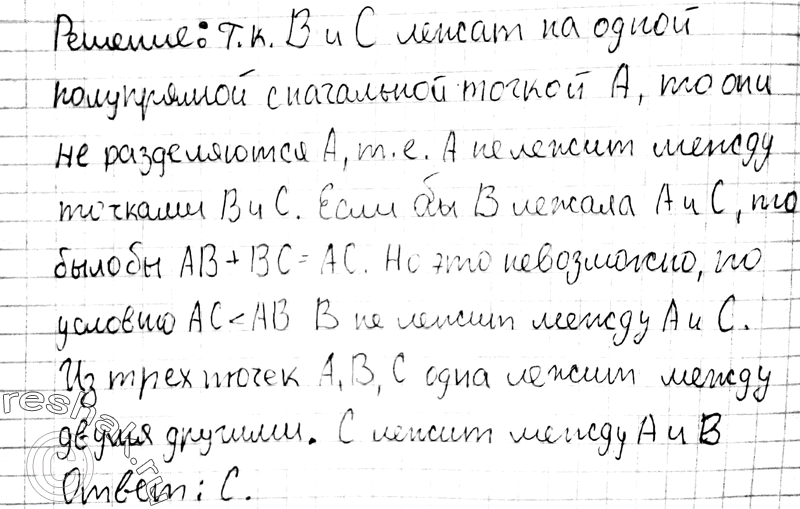 Решение: Т.к. В и С лежат на одной
полупрямой с начальной точкой А, то они
не разделяются А, т.е. А не лежит между
точками В и С. Если бы В лежала А и С, то
было бы АВ + ВС = АС. Но это невозможно, по
условию АС < АВ В не лежит между А и С.
Из трех точек А, В, С одна лежит между
двумя другими. С лежит между А и В
Ответ: С.
reshak.ru